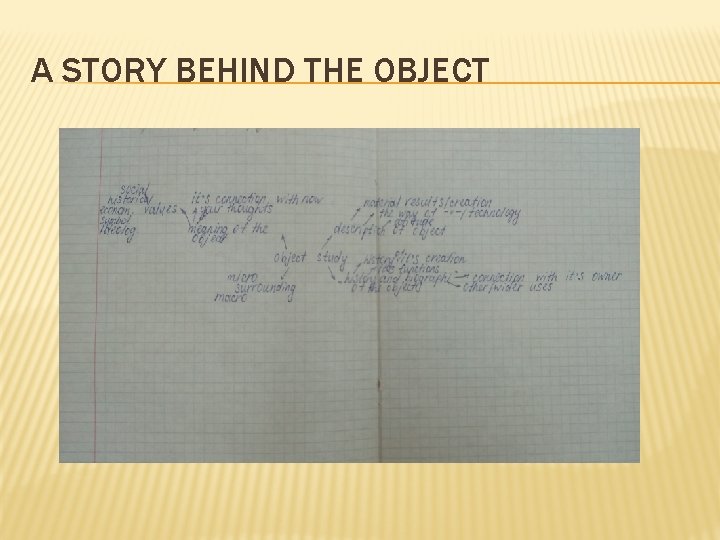 A STORY BEHIND THE OBJECT
social
historical
values
symbol
ideolog
it's connection with now
your thoughts
meaning of the
object
material results/creation
the way of -"-/technology
description of object
object study
micro
surrounding
macro
history of it's creation
functions
history and biography
of the object
connection with it's owner
other/wider uses